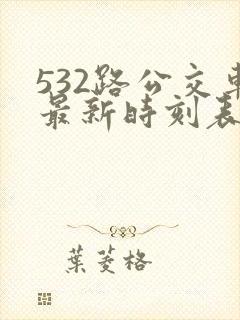 532路公交车
最新时刻表
葉菱格